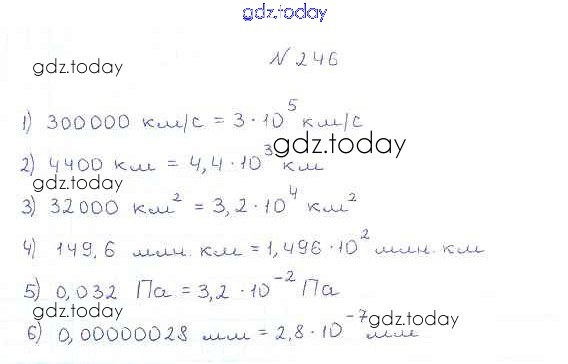 gdz.today
№ 246
gdz.today
1) 300000 км/с = 3·10⁵ км/с
gdz.today
2) 4400 км = 4,4·10³ км
gdz.today
3) 32000 км² = 3,2·10⁴ км²
4) 149,6 млн. км = 1,496·10² млн. км
5) 0,032 Па = 3,2·10⁻² Па
gdz.today
6) 0,00000028 мм = 2,8·10⁻⁷ мм
gdz.today